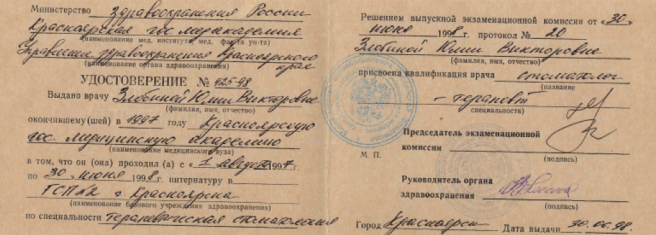 Министерство Здравоохранения России
Красноярская гос. медакадемия
(наименование мед. института, мед. фак-та ун-та)
Управление здравоохранения Красноярского края
(наименование органа здравоохранения)
УДОСТОВЕРЕНИЕ № 425-98
Выдано врачу Злобиной Юлии Викторовне
(фамилия, имя, отчество)
окончившему(шей) в 1997 году Красноярскую
гос. медицинскую академию
(наименование медицинского вуза)
в том, что он (она) проходил (а) с «1 августа 1997.
по «30 июня 1998. интернатуру в
г. Красноярска
(наименование базового учреждения здравоохранения)
по специальности терапевтическая стоматология
Решением выпускной экзаменационной комиссии от «30»
июня 1998 г. протокол № 20
Злобиной Юлии Викторовне
(фамилия, имя, отчество)
присвоена квалификация врача стоматолог
(название
- терапевт
специальности)
Председатель экзаменационной
комиссии
(подпись)
М. П.
Руководитель органа
здравоохранения
(подпись)
Город Красноярск Дата выдачи 30.06.98.